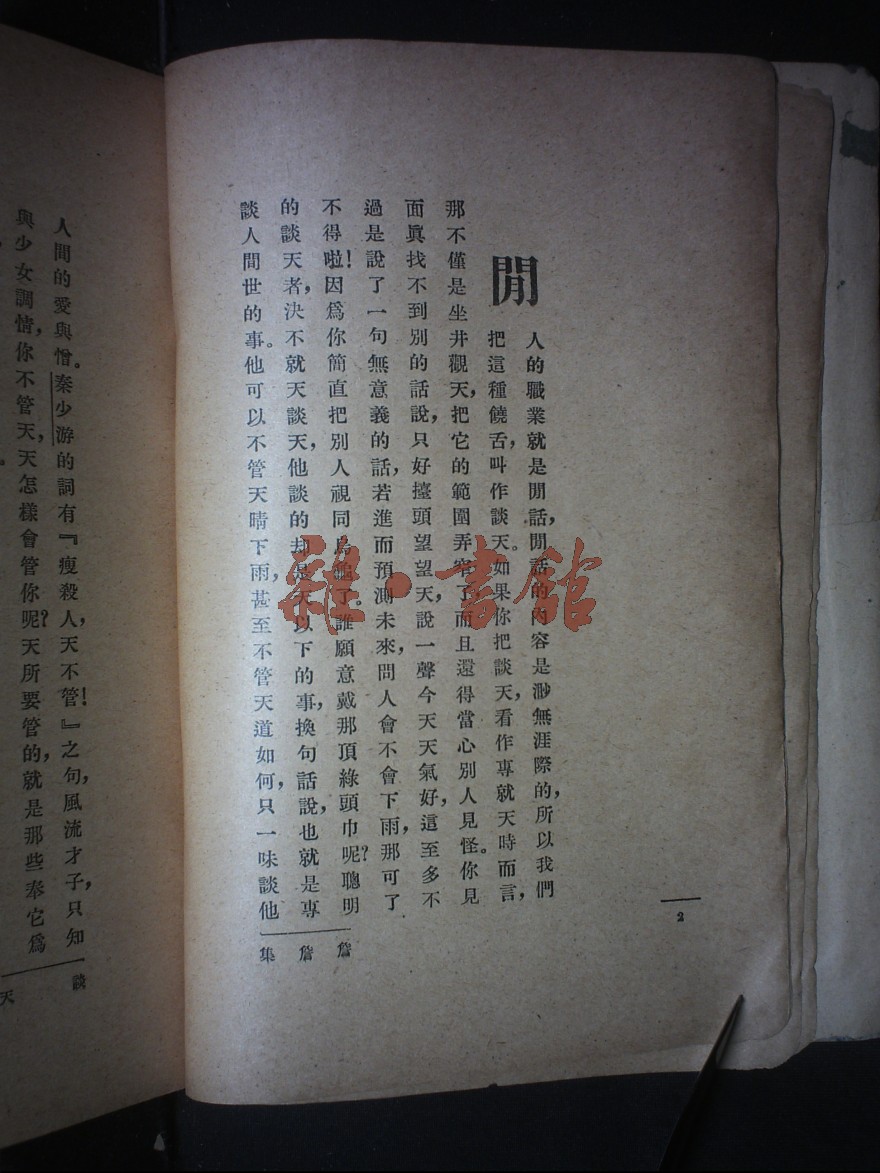 2
閒
人的職業就是閒話,閒話的內容是渺無涯際的,所以我們
把這種饒舌,叫作談天。如果你把談天,看作專就天時而言,
那不僅是坐井觀天,把它的範圍弄窄了,而且還得當心別人見怪。你見
面眞找不到別的話說,只好擡頭望望天,說一聲今天天氣好,這至多不
過是說了一句無意義的話,若進而預測未來,問人會不會下雨,那可了
不得啦!因爲你簡直把別人視同烏龜了。誰願意戴那頂綠頭巾呢?聰明
的談天者,決不就天談天,他談的却是天以下的事,換句話說,也就是專
談人間世的事。他可以不管天晴下雨,甚至不管天道如何,只一味談他
詹詹集
人間的愛與憎。秦少游的詞有『瘦殺人,天不管!』之句,風流才子,只知
與少女調情,你不管天,天怎樣會管你呢?天所要管的,就是那些奉它爲
談天
雜·書館